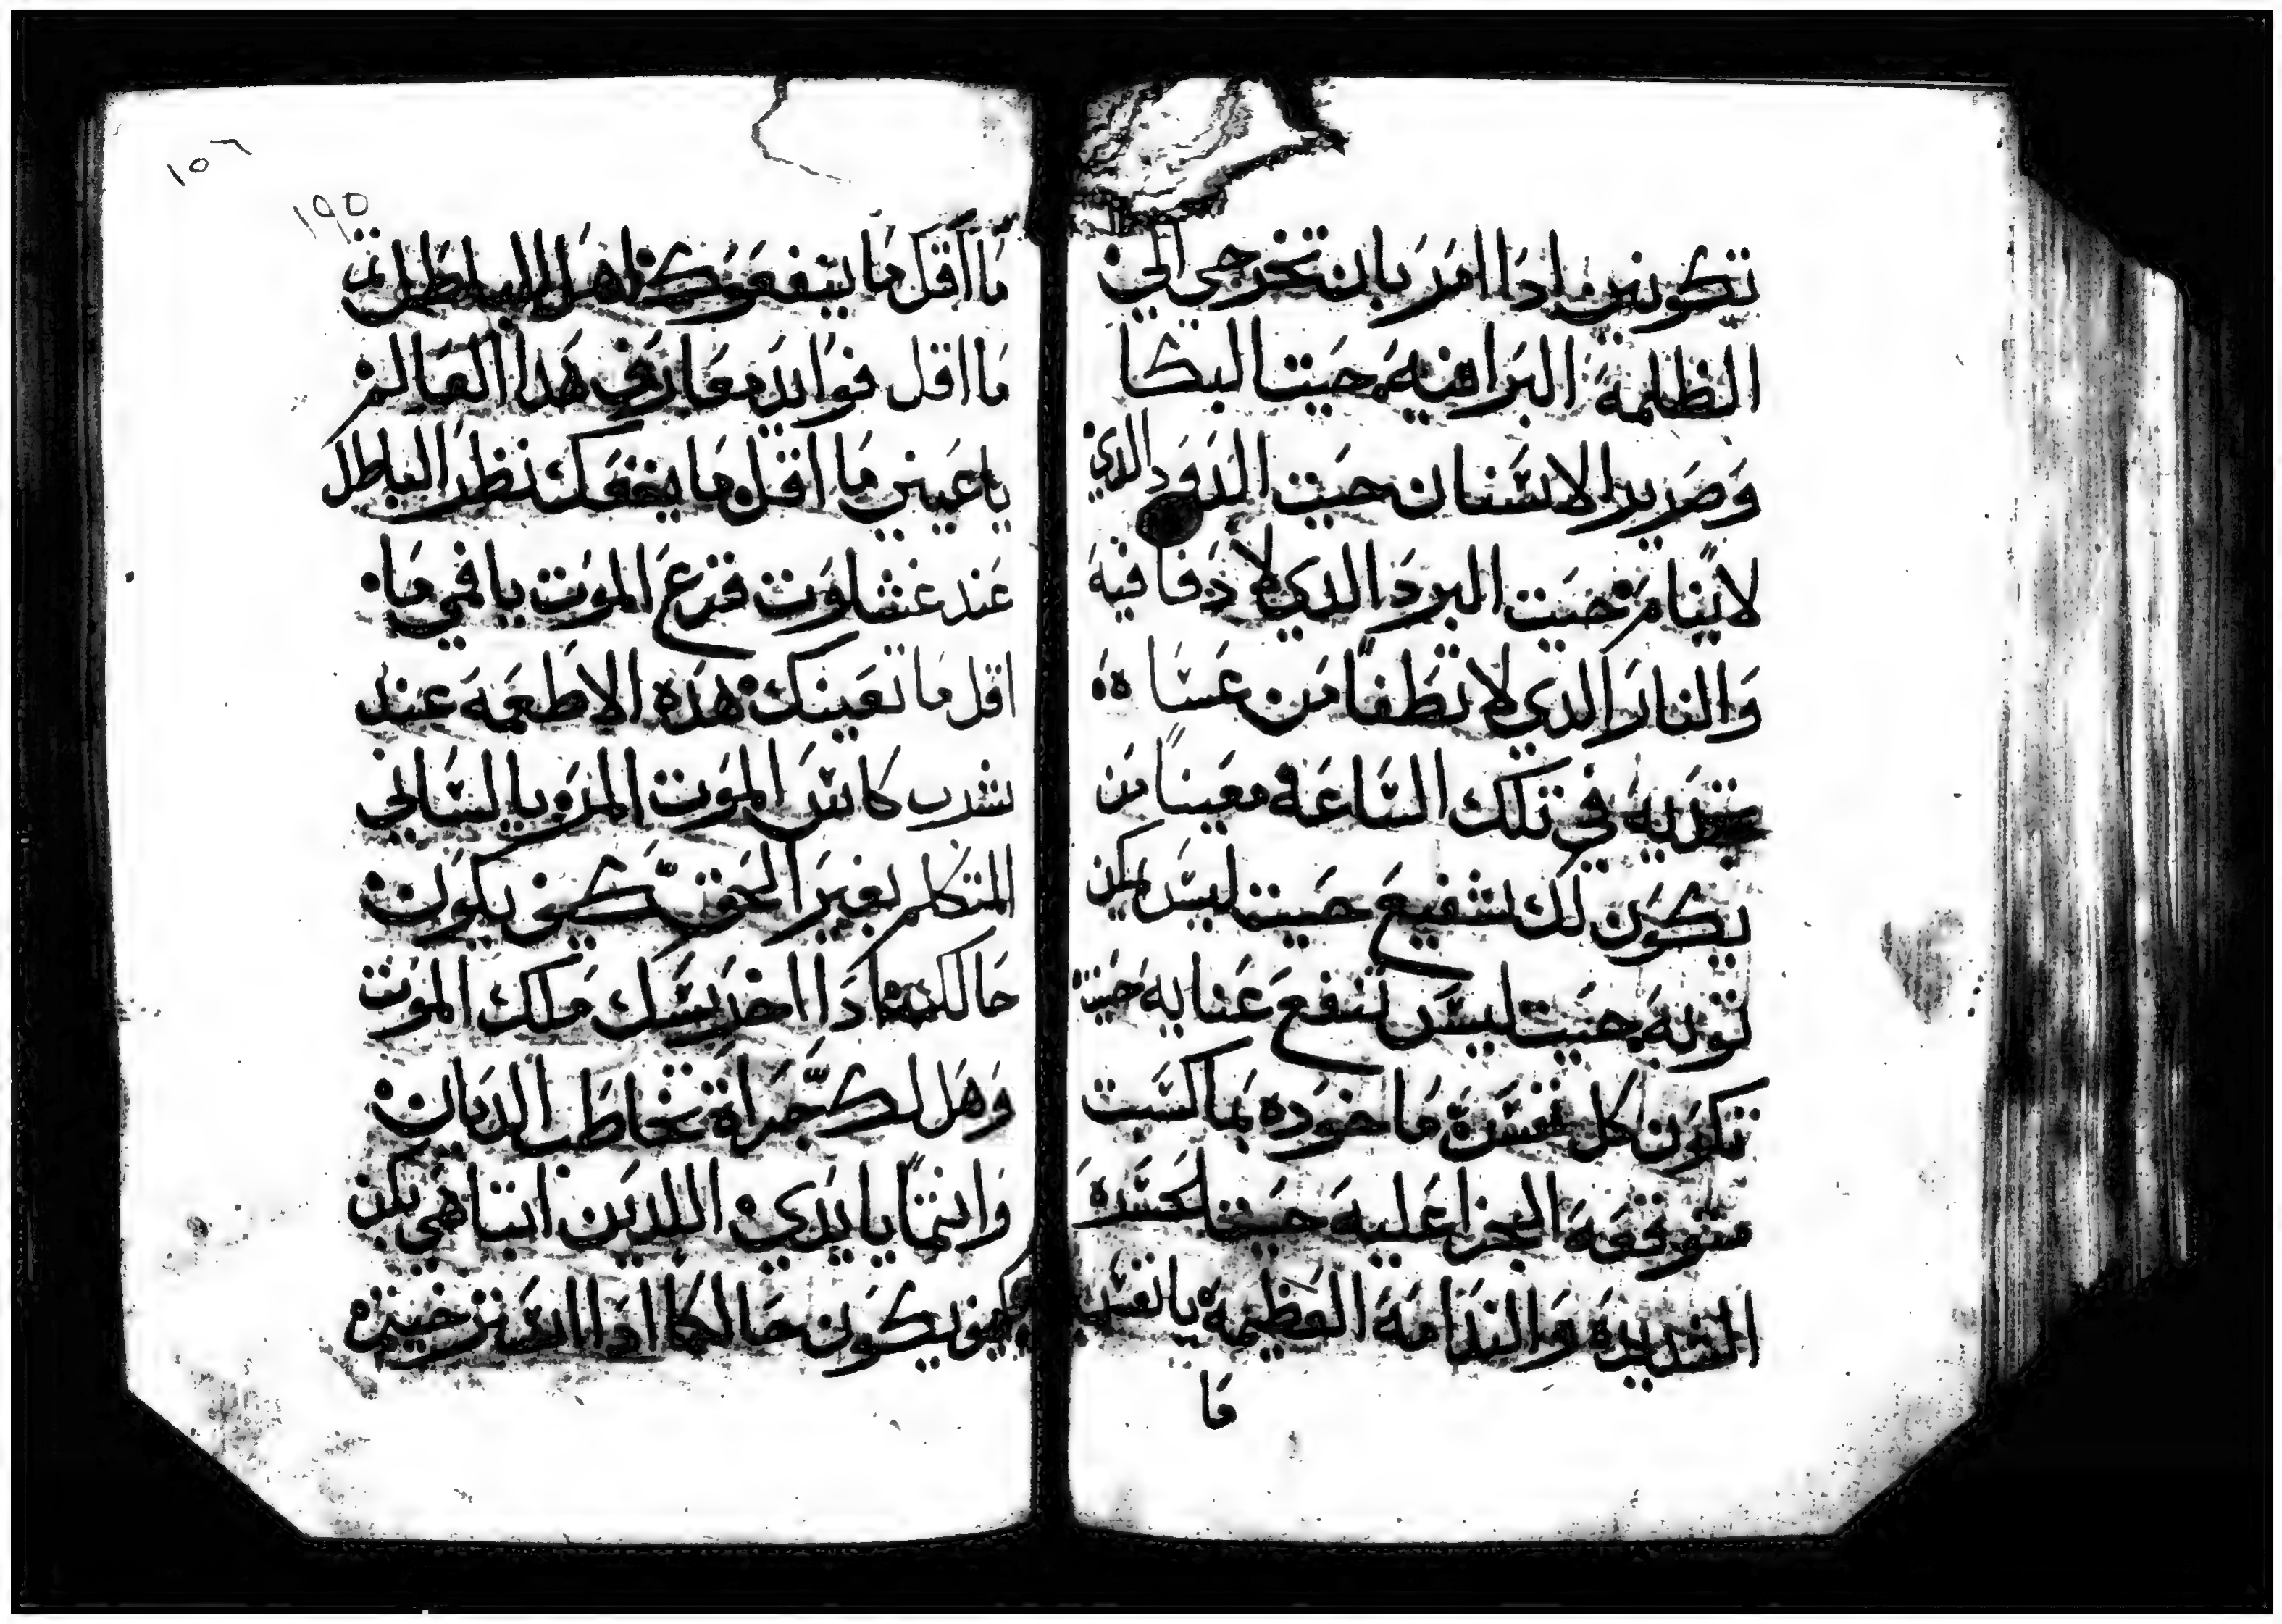 تكوني اذا امر بان تخرجي الي
الظلمة البرانيه حيت البكا
وصرير الاسنان حيت الدود الذي
لا ينام حيت البرد الذي لا دفا فيه
والنار الذي لا تطفا من عساه
تريه في تلك الساعه معينا من
يكون لك شفيع حيت ليس يمكن
توبه حيت ليس تنفع عنايه حيت
تكون كل نفس ماخوده بما كسبت
متوقفه الجزا عليه حيت الحسره
الشديده والندامه العظيمه يا نفس
ما
١٥٦
١٩٥
ما اقل ما ينفعوك اهل الباطل
ما اقل فوايد معارف هدا العالم
يا عيني ما اقل ما ينفعك نظر الباطل
عند غشاوت فزع الموت يا فمي ما
اقل ما تعينك هده الاطعمه عند
شرب كاس الموت المر يا لساني
المتكلم بغير الحق كيف يكون
حالك ادا اخرسك ملك الموت
وهل لك جراة تخاطب الديان
وانتما يا يدي اللدين
كيف يكون حالكما ادا